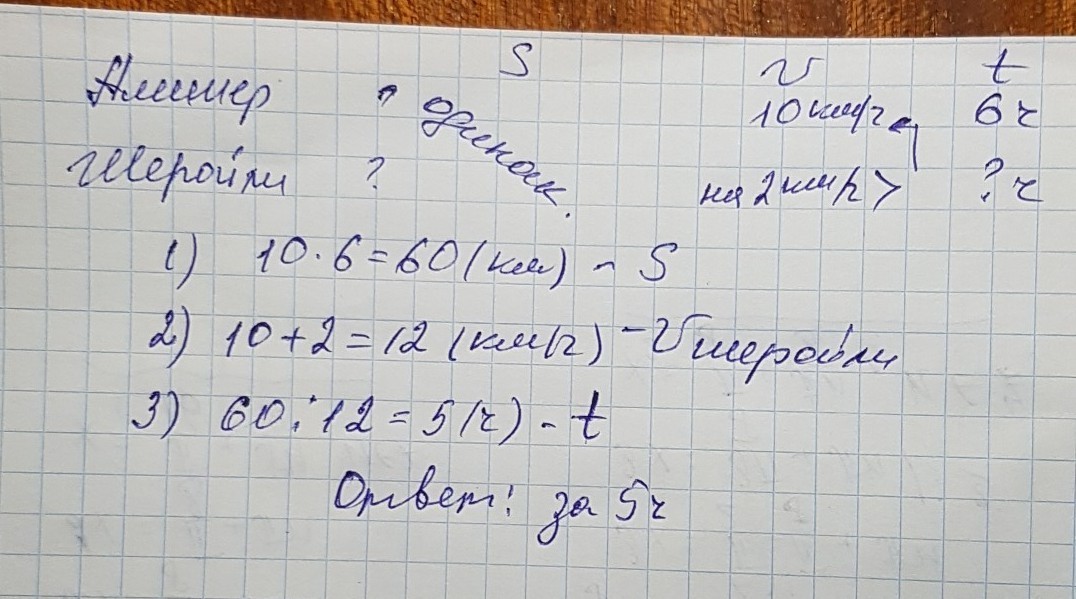 S v t
Алишер ? одинак. 10 км/ч 6 ч
Шеройли ? на 2 км/ч > ? ч
1) 10 · 6 = 60 (км) - S
2) 10 + 2 = 12 (км/ч) - v шеройли
3) 60 : 12 = 5 (ч) - t
Ответ: за 5 ч